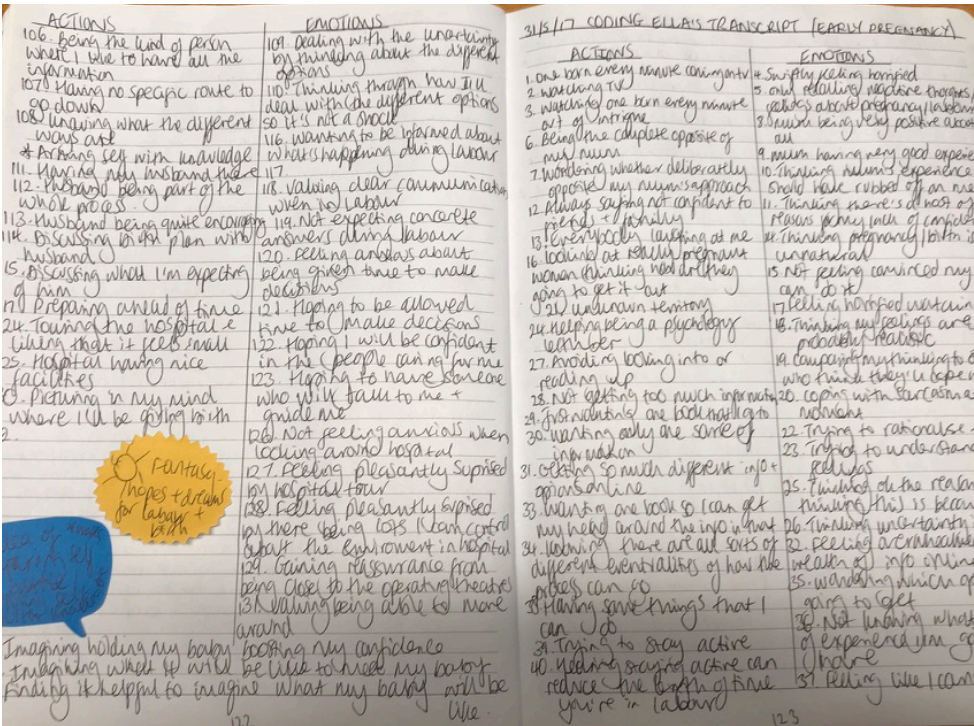 ACTIONS
106. Being the kind of person
where I like to have all the
information
107. Having no specific route to
go down
108. Knowing what the different
ways are
* Arming self with knowledge
111. Having my husband there
112. Husband being part of the
whole process
113. Husband being quite encouraging
114. Discussing birth plan with
husband
15. Discussing what I'm expecting
of him
Preparing ahead of time
24. Touring the hospital +
liking that it feels small
25. Hospital having nice
facilities
Picturing in my mind
where I'll be giving birth
2.
Fantasy -
hopes + dreams
for labour +
birth
EMOTIONS
109. Dealing with the uncertainty
by thinking about the different
options
110. Thinking through how I'll
deal with the different options
so it's not a shock
116. Wanting to be informed about
what's happening during labour
117.
118. Valuing clear communication
when in labour
119. Not expecting concrete
answers during labour
120. Feeling anxious about
being given time to make
decisions
121. Hoping to be allowed
time to make decisions
122. Hoping I will be confident
in the people caring for me
123. Hoping to have someone
who will talk to me +
guide me
126. Not feeling anxious when
looking around hospital
127. Feeling pleasantly suprised
by hospital tour
128. Feeling pleasantly suprised
by there being lots I can control
about the enviroment in hospital
129. Gaining reassurance from
being close to the operating theatres
131. Valuing being able to move
around
Imagining holding my baby boosting my confidence
Imagining what it will be like to meet my baby
Finding it helpful to imagine what my baby will be
like.
122
31/5/17 CODING ELLA'S TRANSCRIPT (EARLY PREGNANCY)
ACTIONS
1. One born every minute coming on tv
2. Watching TV
3. Watching one born every minute
out of intrigue
6. Being the complete opposite of
my mum
7. Wondering whether deliberately
opposite my mum's approach
12. Always saying not confident to
friends + family
13. Everybody laughing at me
16. Looking at really pregnant
woman thinking how are they
going to get it out
21. unknown territory
24. Helping being a psychology
27. Avoiding looking into or
reading up
28. Not getting too much information
29. Just wanting one book that I go to
30. Wanting only one source of
information
31. Getting so much different info +
opinions online
33. Wanting one book so I can get
my head around the info in that
34. Knowing there are all sorts of
different eventualities of how the
process can go
38. Having some things that I
can do
39. Trying to stay active
40. Hearing staying active can
reduce the length of time
you're in labour
EMOTIONS
4. Swiftly feeling horrified
5. Only recalling negative thoughts/
feelings about pregnancy/labour
8. Mum being very positive about
all
9. Mum having very good experience
10. Thinking mum's experience
should have rubbed off on me
11. Thinking there's a host of
reasons for my lack of confid
14. Thinking pregnancy/birth is
unnatural
15 Not feeling convinced my
can do it
17 Feeling horrified watching
18. Thinking my feelings are
probably realistic
19. Comparing my thinking to
who think they'll cope
20. Coping with sarcasm
22. Trying to rationalise
23. Trying to understand
feelings
25. Thinking of the reason
thinking this is because
26. Thinking uncertainty
32. Feeling overwhelmed
wealth of info online
35. Wondering which
going to get
36. Not knowing what
of experience I'm go
have
37. Feeling like I can
123